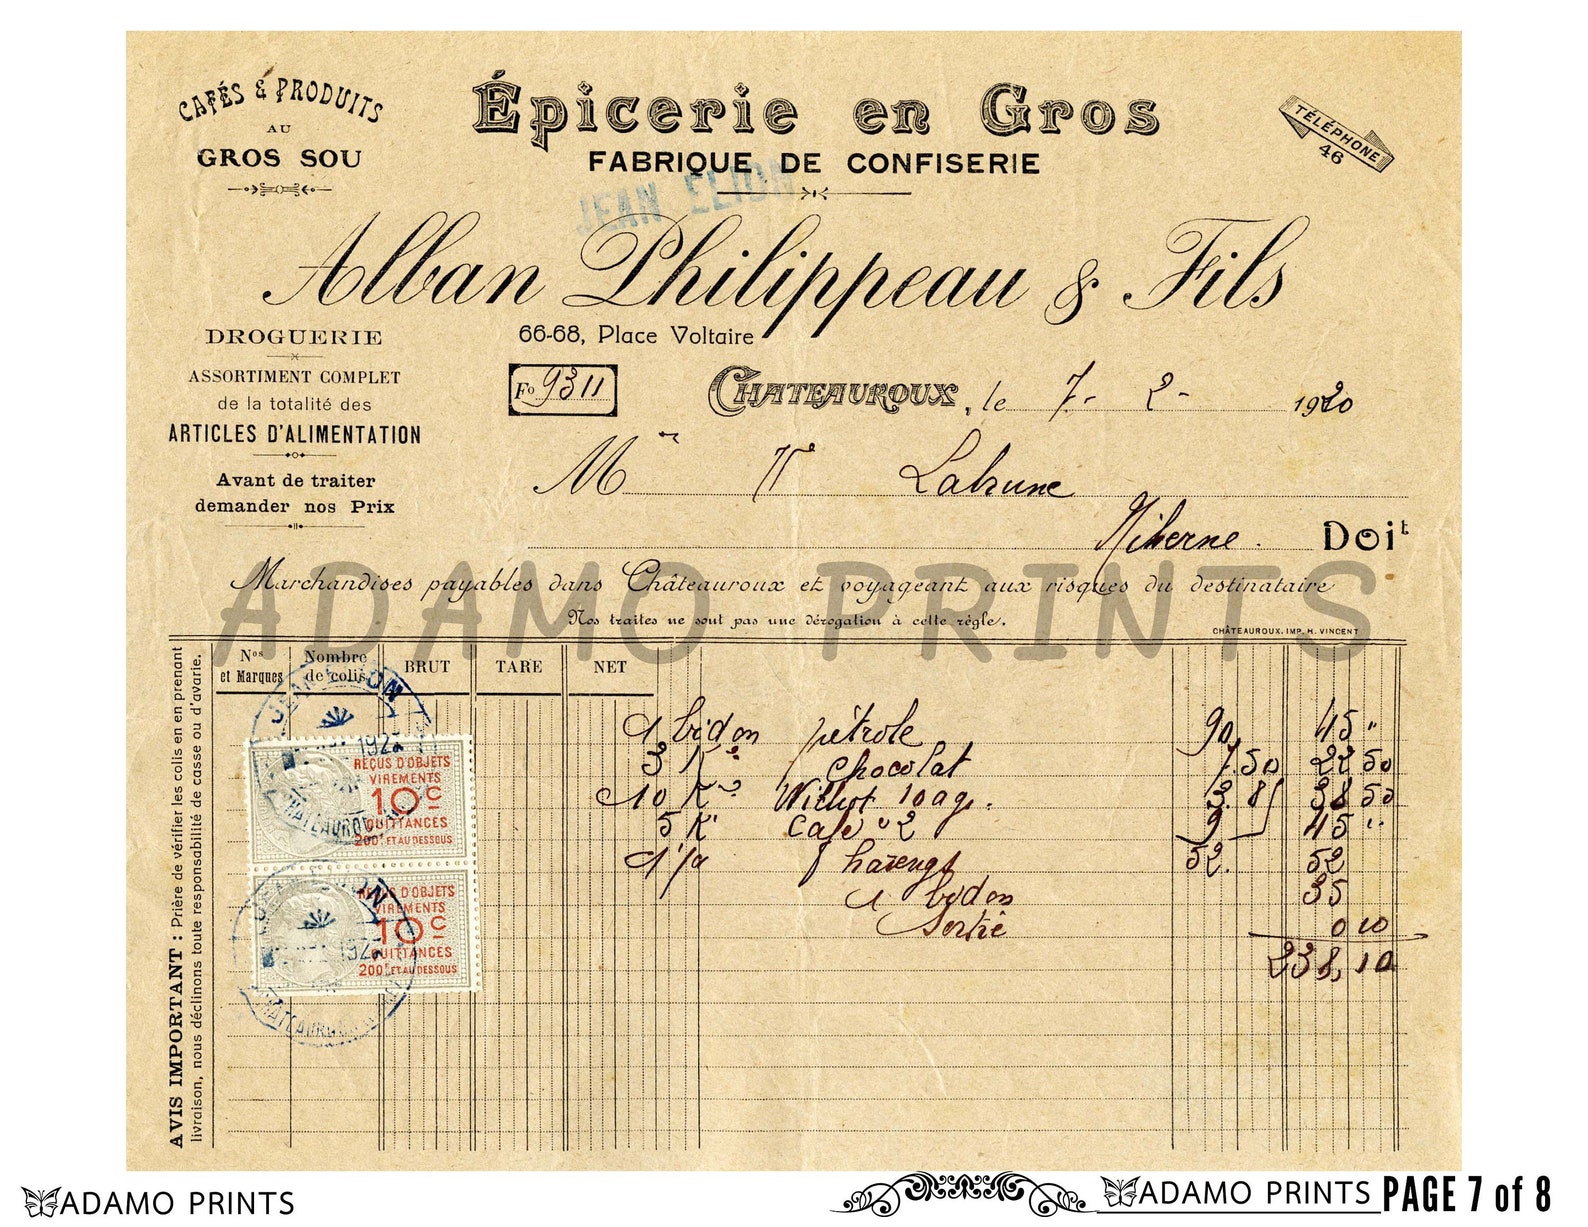 CAFÉS & PRODUITS
AU
GROS SOU
Épicerie en Gros
FABRIQUE DE CONFISERIE
TÉLÉPHONE
46
JEAN ELION
Alban Philippeau & Fils
DROGUERIE
ASSORTIMENT COMPLET
de la totalité des
ARTICLES D'ALIMENTATION
Avant de traiter
demander nos Prix
66-68, Place Voltaire
Fo 9311
CHATEAUROUX, le 7- 2- 1920
M Labrune
Niherne. Doit
Marchandises payables dans Châteauroux et voyageant aux risques du destinataire
Nos traites ne sont pas une dérogation à cette règle.
CHÂTEAUROUX. IMP. H. VINCENT
ADAMO PRINTS
AVIS IMPORTANT : Prière de vérifier les colis en en prenant
livraison, nous déclinons toute responsabilité de casse ou d'avarie.
Nos et Marques Nombre de colis BRUT TARE NET
1 bidon pétrole 90 45 "
3 Ko Chocolat 7.50 22 50
10 Ko 10 ag. 3.85 38 50
5 K Café " 2 9 45 "
harengs 52. 52
1 bidon 35
Sortie 0 10
238,10
JEAN ELION
CHATEAUROUX
REÇUS D'OBJETS
VIREMENTS
10c
QUITTANCES
200f ET AU DESSOUS
JEAN ELION
CHATEAUROUX
REÇUS D'OBJETS
VIREMENTS
10c
QUITTANCES
200f ET AU DESSOUS
ADAMO PRINTS
ADAMO PRINTS PAGE 7 of 8